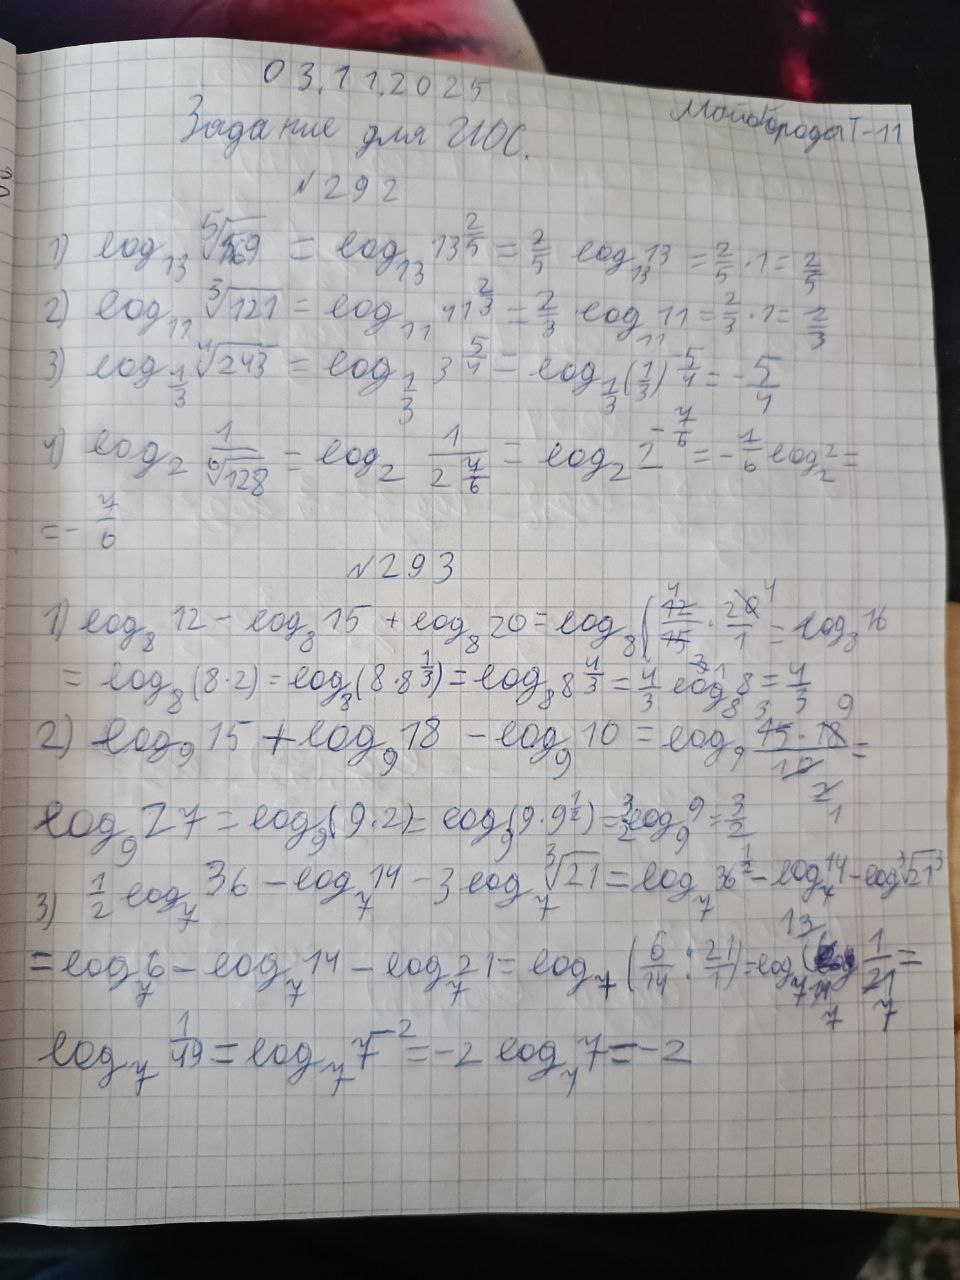 03.11.2025
Задание для ЦОС. Майбороды Т-11
№292
1) log₁₃ ⁵√169 = log₁₃ 13^(2/5) = 2/5 log₁₃ 13 = 2/5 · 1 = 2/5
2) log₁₁ ³√121 = log₁₁ 11^(2/3) = 2/3 · log₁₁ 11 = 2/3 · 1 = 2/3
3) log_(1/3) ⁴√243 = log_(1/3) 3^(5/4) = log_(1/3) (1/3)^(-5/4) = -5/4
4) log₂ 1/⁶√128 = log₂ 1/2^(7/6) = log₂ 2^(-7/6) = -7/6 log₂ 2 =
= -7/6
№293
1) log₈ 12 - log₈ 15 + log₈ 20 = log₈ (12/15 · 20/1 = log₈ 16
= log₈ (8·2) = log₈ (8·8^(1/3)) = log₈ 8^(4/3) = 4/3 log₈ 8 = 4/3
2) log₉ 15 + log₉ 18 - log₉ 10 = log₉ (15·18)/10 =
log₉ 27 = log₉ (9·2) = log₉ (9·9^(1/2)) = 3/2 log₉ 9 = 3/2
3) 1/2 log₇ 36 - log₇ 14 - 3 log₇ ³√21 = log₇ 36^(1/2) - log₇ 14 - log ³√21³
= log₇ 6 - log₇ 14 - log₇ 21 = log₇ (6/14 : 21/1) = log₇ 1/21 =
log₇ 1/49 = log₇ 7^(-2) = -2 log₇ 7 = -2